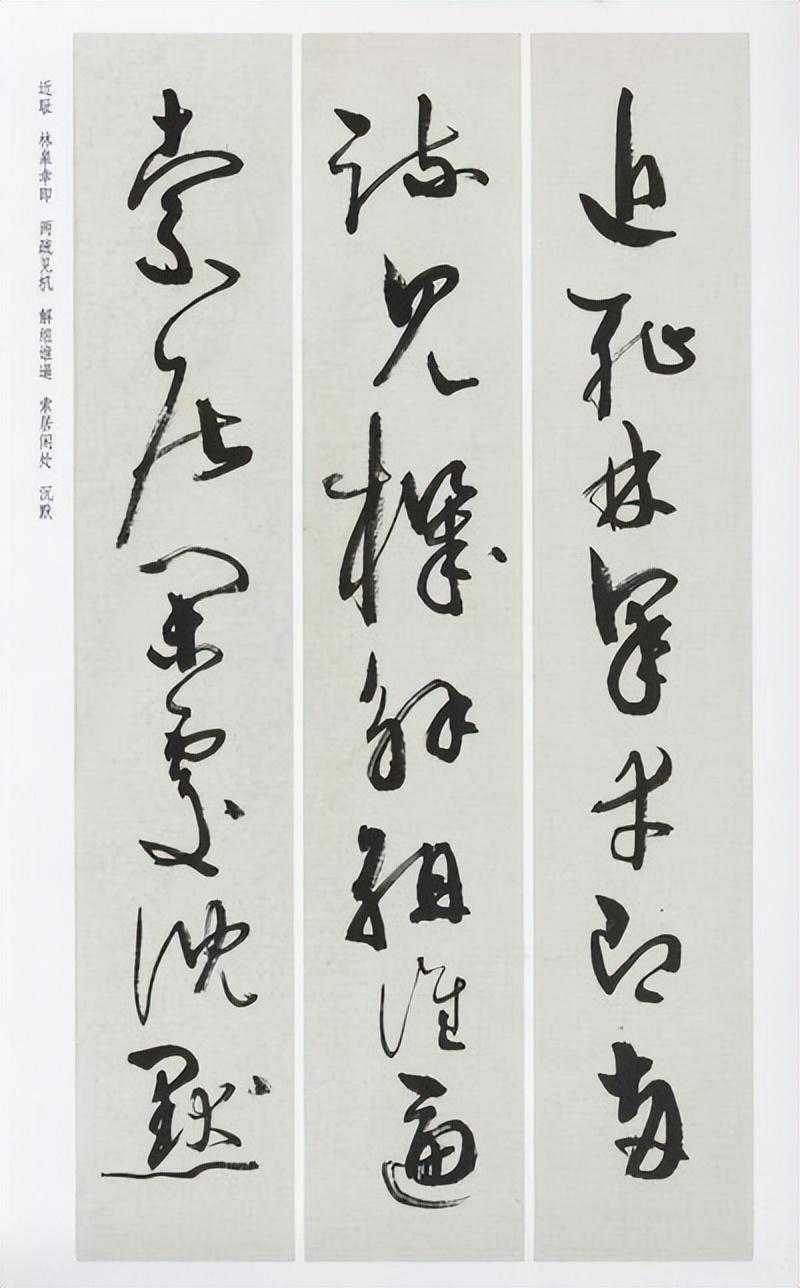 近耻林皋幸即两
疏见机解组谁逼
索居闲处沉默
近耻 林皋幸即 两疏见机 解组谁逼 索居闲处 沉默